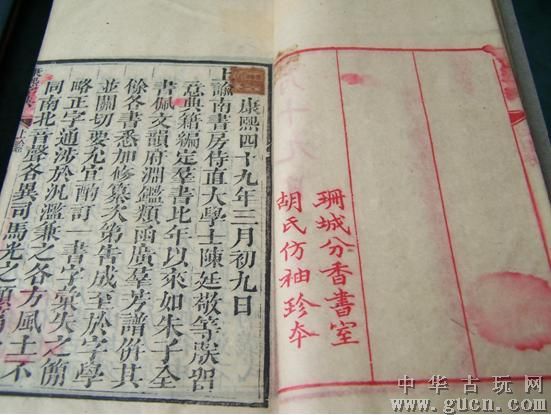 珊城分香書室
胡氏仿袖珍本
康熙四十九年三月初九日
上諭南書房侍直大學士陳廷敬等朕留
意典籍編定羣書比年以來如朱子全
書佩文韻府淵鑑類函廣羣芳譜併其
餘各書悉加修纂次第告成至於字學
並關切要允宜酌訂一書字彙失之簡
略正字通涉於汎濫兼之各方風土不
同南北音聲各異司馬光之類篇
中华古玩网
www.gucn.com